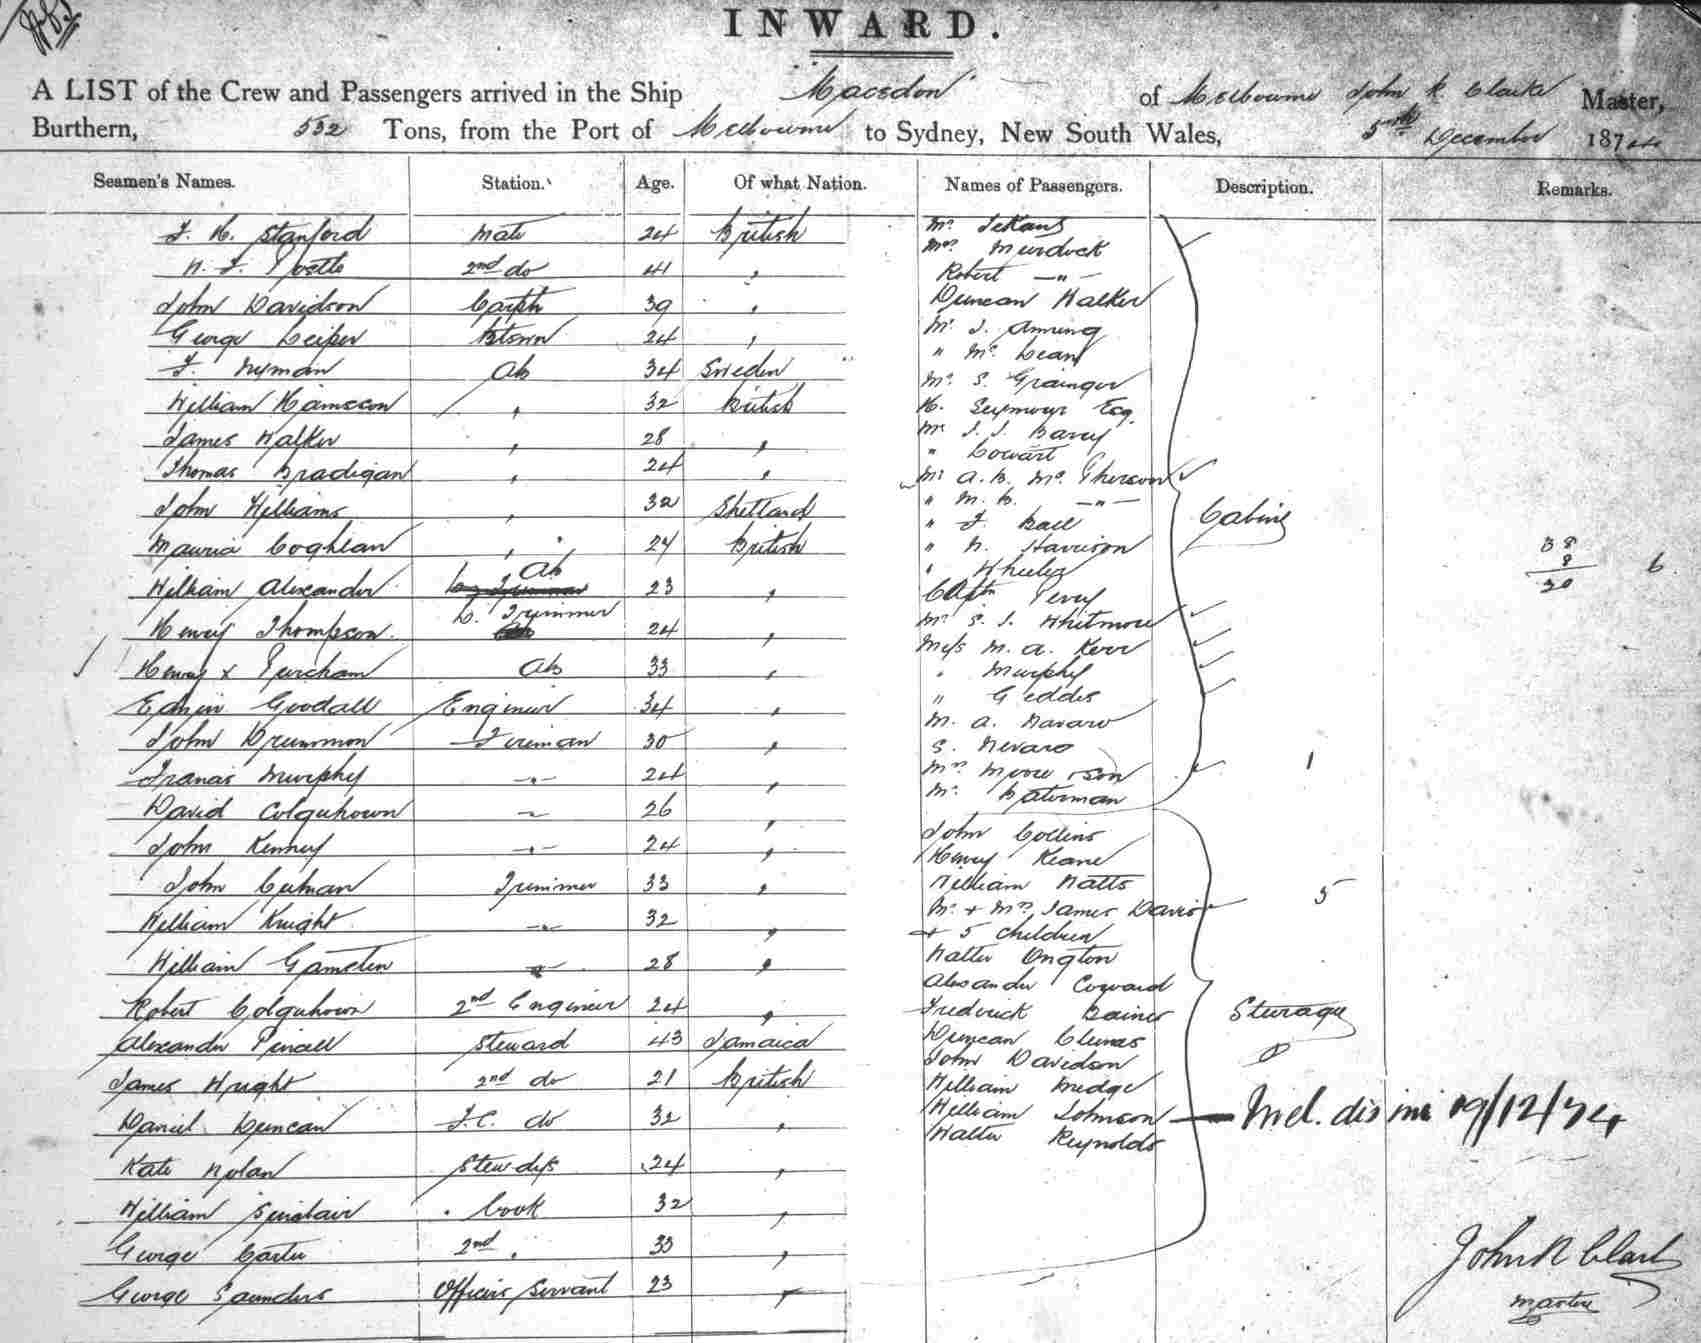 INWARD.
A LIST of the Crew and Passengers arrived in the Ship "Macedon" of Melbourne John K. Clarke Master,
Burthern, 532 Tons, from the Port of Melbourne to Sydney, New South Wales, 5th December 1874
Seamen's Names. Station. Age. Of what Nation. Names of Passengers. Description. Remarks.
J. H. Stanford Mate 24 British
2nd do 41 "
John Davidson Carptr 39 "
George Leiper 24 "
J. Nyman Ab 34 Sweden
William 32 British
James Walker " 28 "
Thomas Bradigan " 24 "
John Williams " 32 Shetland
Coghlan " 24 British
William Alexander Ab 23 "
Henry Thompson C. Trimmer 24 "
Henry x Ab 33 "
Edwin Goodall Engineer 34 "
John Drummon Fireman 30 "
Francis Murphy -"- 24 "
David Colquhown " 26 "
John Kenney -"- 24 "
John Trimmer 33 "
William Knight -"- 32 "
William " 28 "
Robert Colquhown 2nd Engineer 24 "
Alexander 43 Jamaica
James Wright 2nd do 21 British
Daniel Duncan F.C. do 32 "
Kate Nolan Stewdess 24 "
William Sinclair Cook 32 "
George Carter 2nd " 33 "
George Saunders Officers Servant 23 "
Mrs Murdock
Robert -"-
Duncan Walker
Mr J.
" Mc Lean
Mr S. Grainger
H. Seymour Esq.
Mr J. J.
"
Mr A. B. Mc Pherson
" M. B. -"-
" J. Ball
" Harrison
" Wheeler
Captn
Mr S. J. Whitmore
Miss M. A. Kerr
" Murphy
" Geddes
M. A. Navaro
S. Nevaro
Mrs Moore & son
Mr Bateman
Cabin
38
8
30
6
1
John Collins
Henry Keane
William Watts
Mr & Mrs James Davis
& 5 children
5
Walter Ongton
Alexander Coward
Frederick
Duncan
John Davidson
William
William Johnson
Walter Reynolds
Steerage
19/12/74
John K Clark
Master